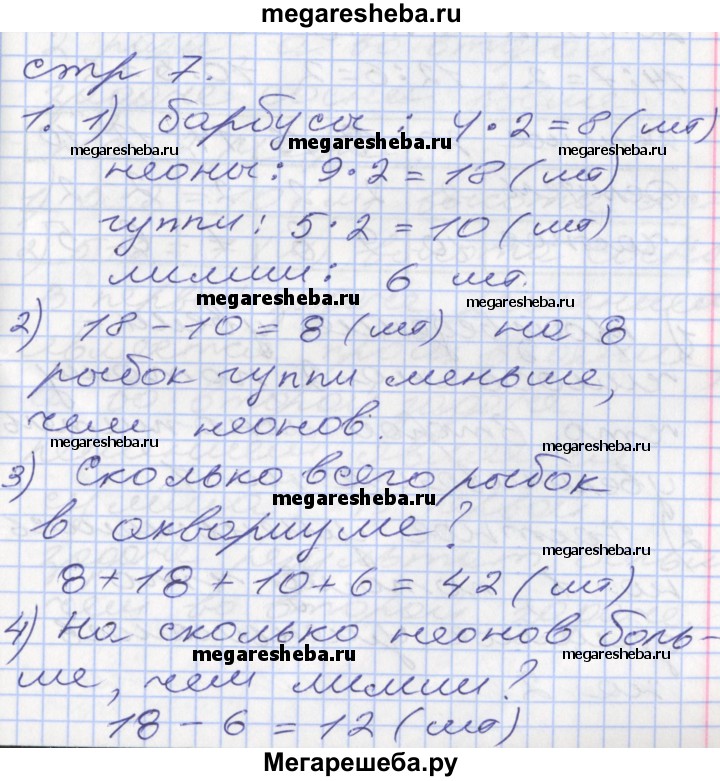 megaresheba.ru
стр 7.
1. 1) барбусы : 4 · 2 = 8 (шт)
megaresheba.ru megaresheba.ru megaresheba.ru
неоны: 9 · 2 = 18 (шт)
гуппи: 5 · 2 = 10 (шт)
лилии: 6 шт.
megaresheba.ru megaresheba.ru
2) 18 - 10 = 8 (шт) на 8
рыбок гуппи меньше,
чем неонов.
megaresheba.ru megaresheba.ru
3) Сколько всего рыбок
megaresheba.ru
в аквариуме?
megaresheba.ru
8 + 18 + 10 + 6 = 42 (шт)
4) На сколько неонов боль-
megaresheba.ru megaresheba.ru
ше, чем лилии?
18 - 6 = 12 (шт)
Мегарешеба.ру